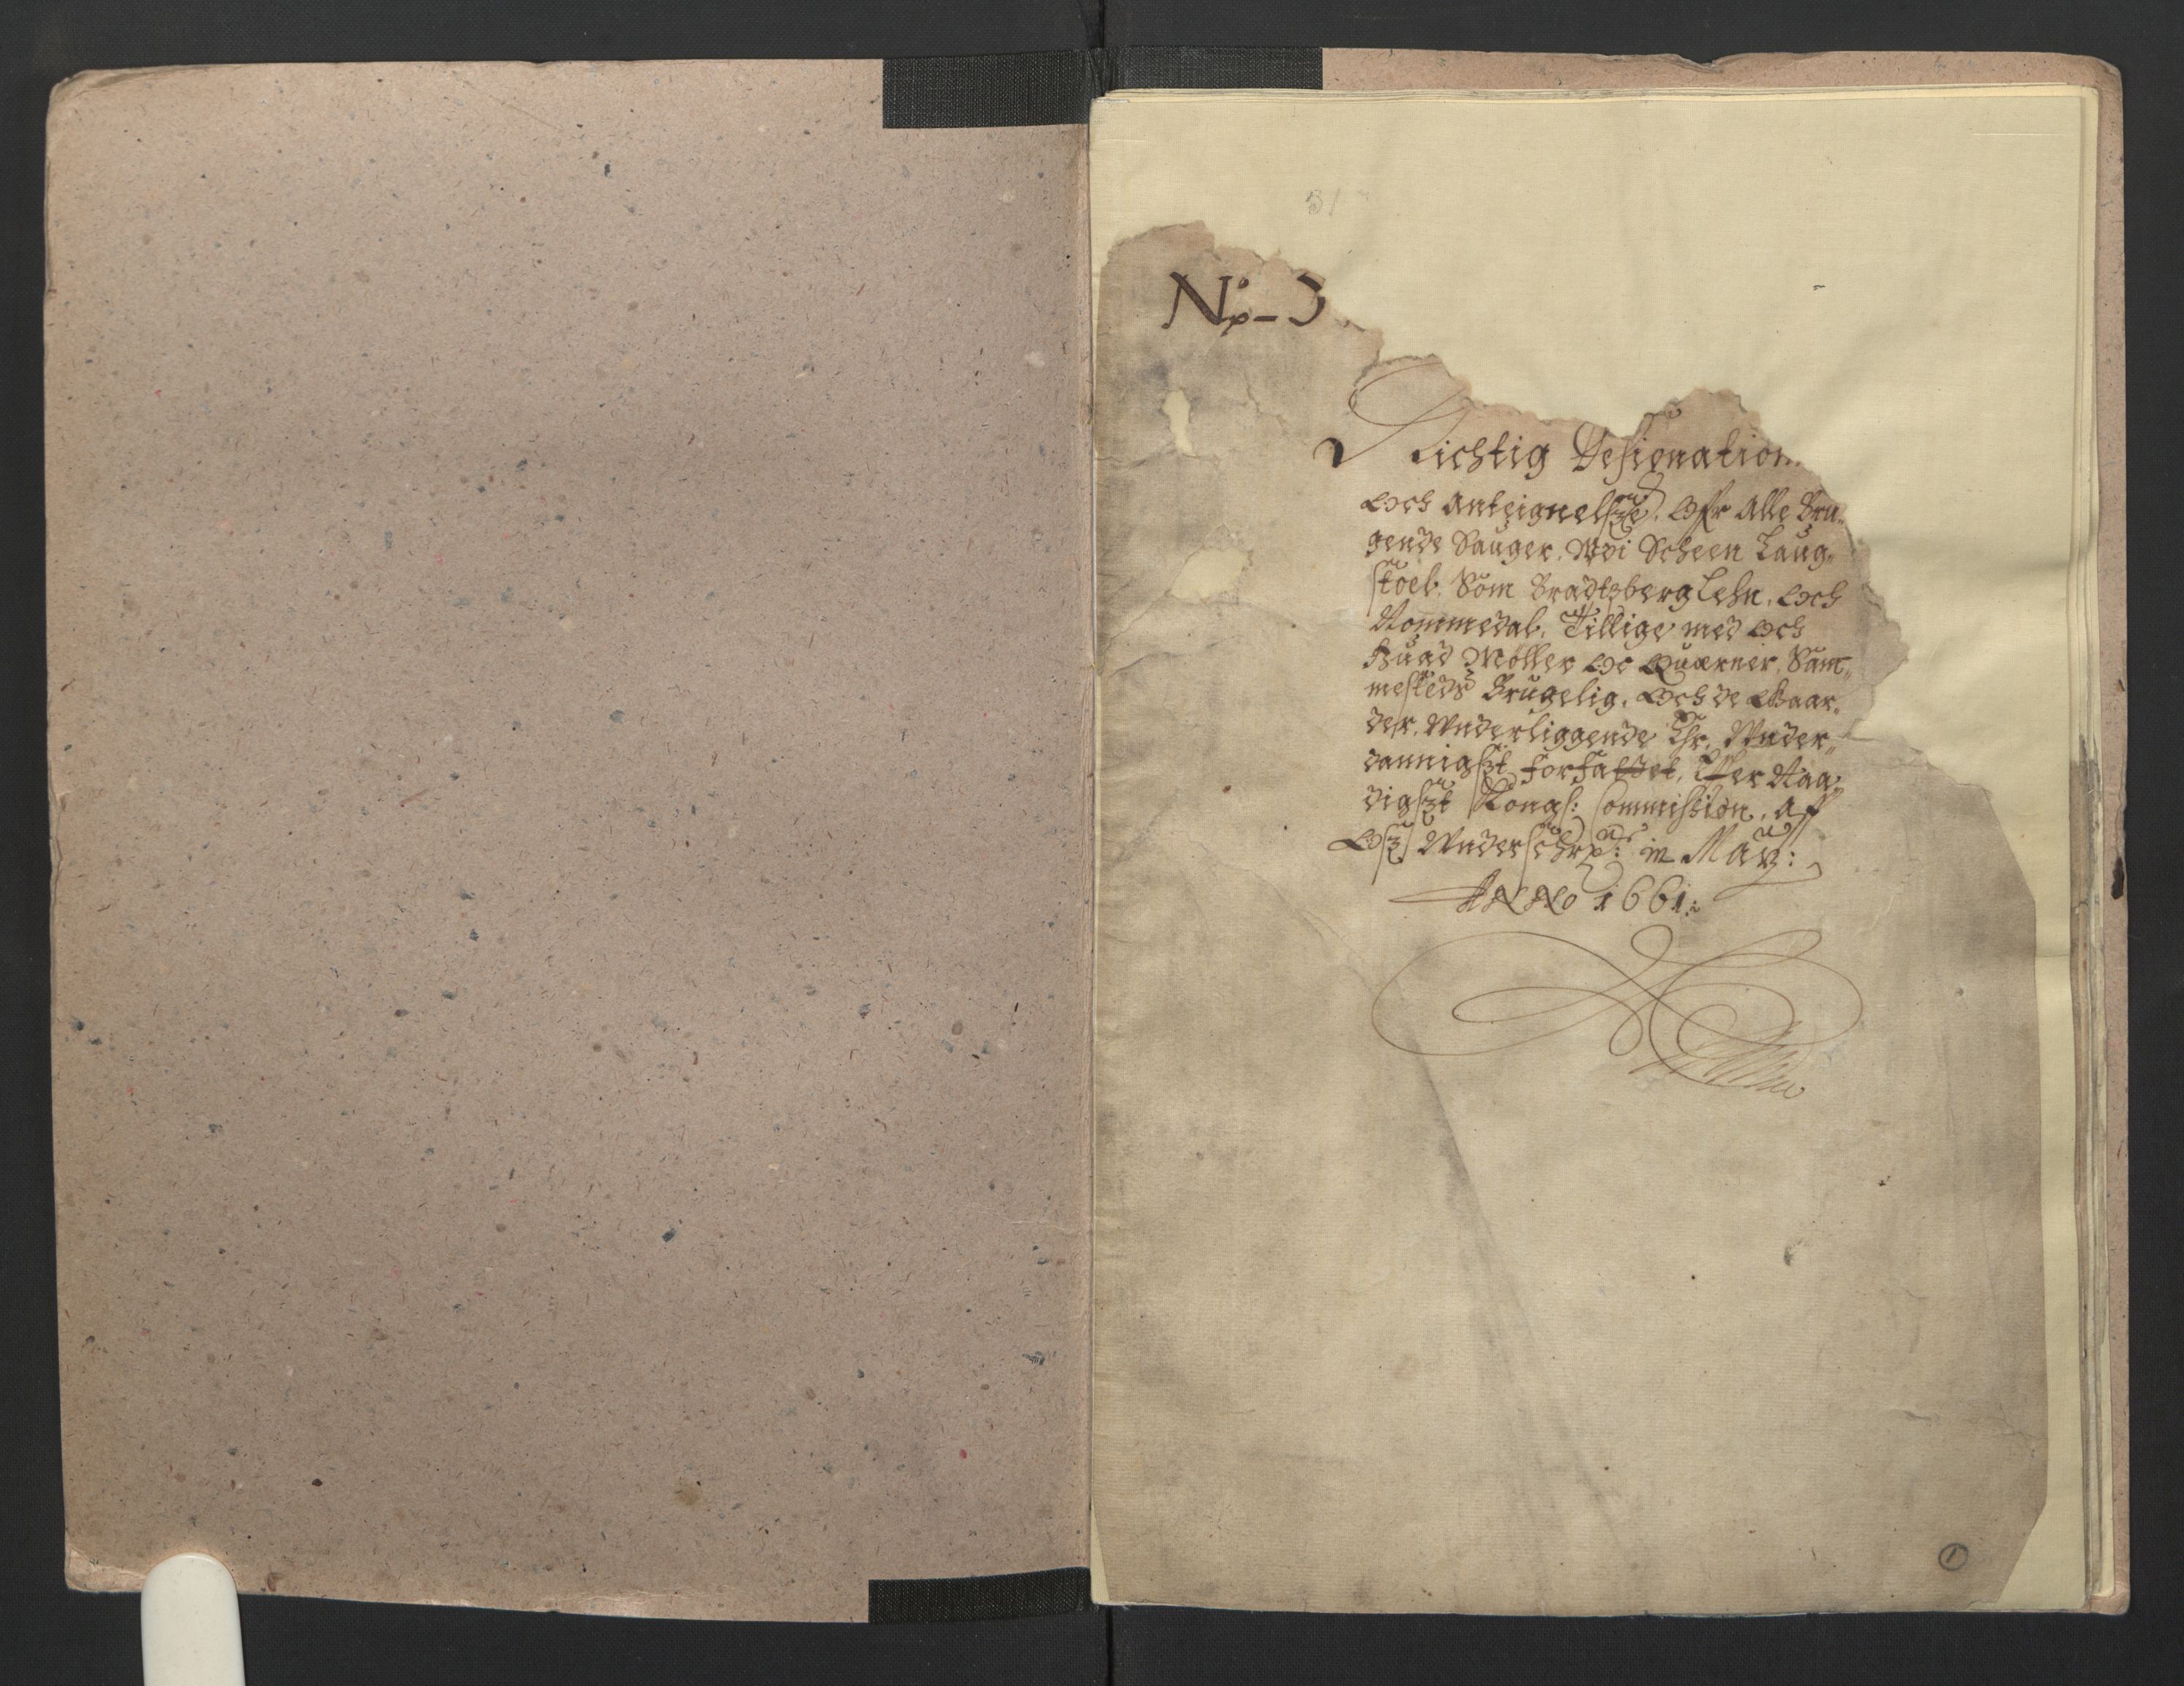 51
No 3
Richtig Designation
Och Anteignelsze, Ofr Alle Bru„
gende Sauger, Wdi Scheen Laug„
stoel, Som Bradtzberg Lehn, Och
Nommedal, Tillige med Och
huad Möller Oc Quærner, Sam„
mesteds Brugelig, Och de Gaar„
der, Underliggende Ehr, Under„
dannigszt forfattet, Efter Naa„
digszt Kongl: Commission, Aff
Osz Underschrn: in May:
ANNO 1661:
1